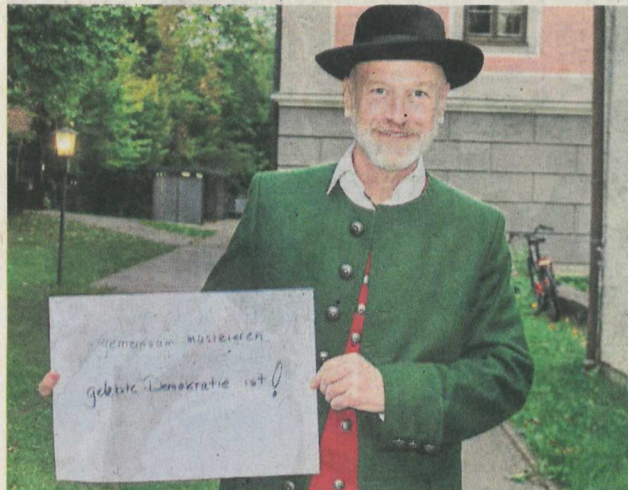 gemeinsam musizieren
gelebte Demokratie ist!